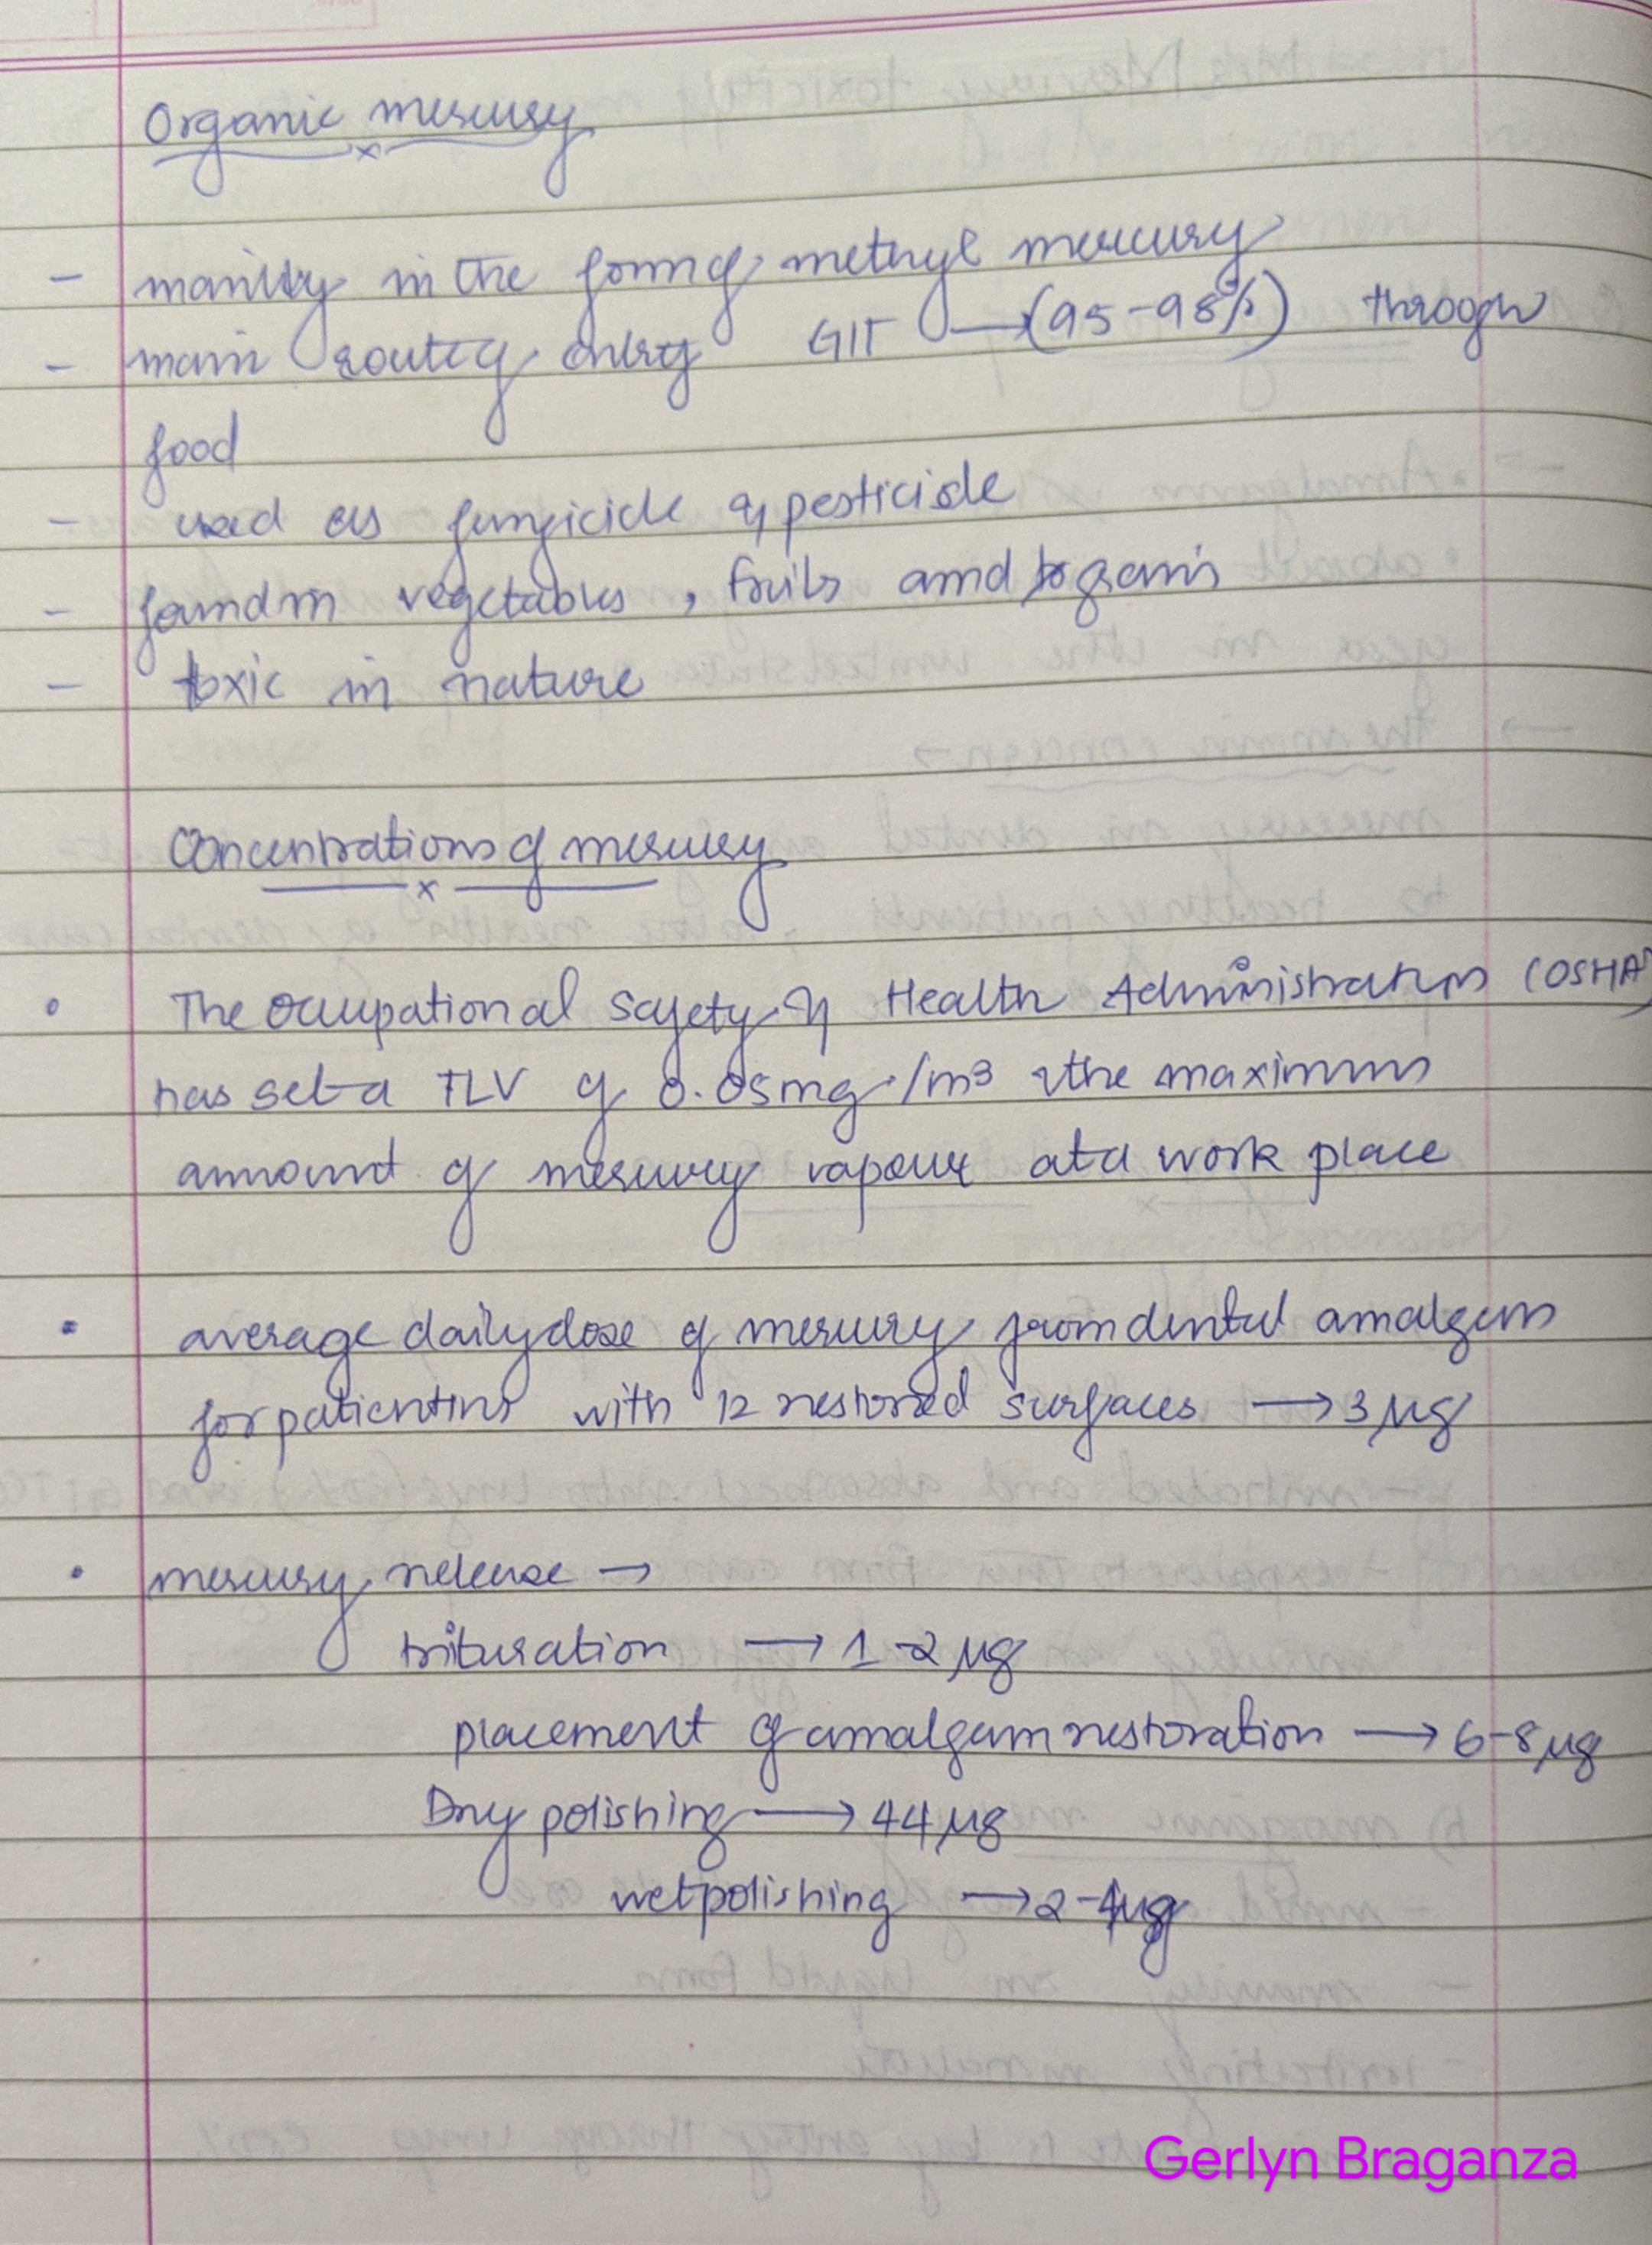 Organic mercury
- mainly in the form of methyl mercury
- main route of entry GIT → (95-98%) through
food
- used as fungicide & pesticide
- found in vegetables, fruits and grains
- toxic in nature
Concentrations of mercury
• The Occupational Safety & Health Administration (OSHA)
has set a TLV of 0.05mg/m3 the maximum
amount of mercury vapour at a work place
• average daily dose of mercury from dental amalgam
for patients with 12 restored surfaces → 3 µg
• mercury release →
trituration → 1-2 µg
placement of amalgam restoration → 6-8 µg
Dry polishing → 44 µg
wet polishing → 2-4 µg
Gerlyn Braganza